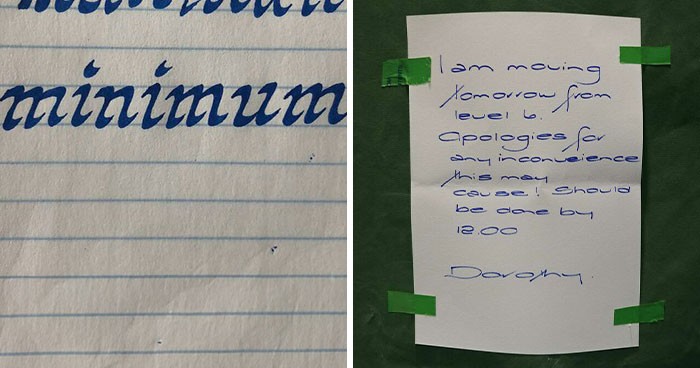 minimum
I am moving
tomorrow from
level 6.
Apologies for
any inconveience
this may
cause! Should
be done by
12.00
Dorothy.